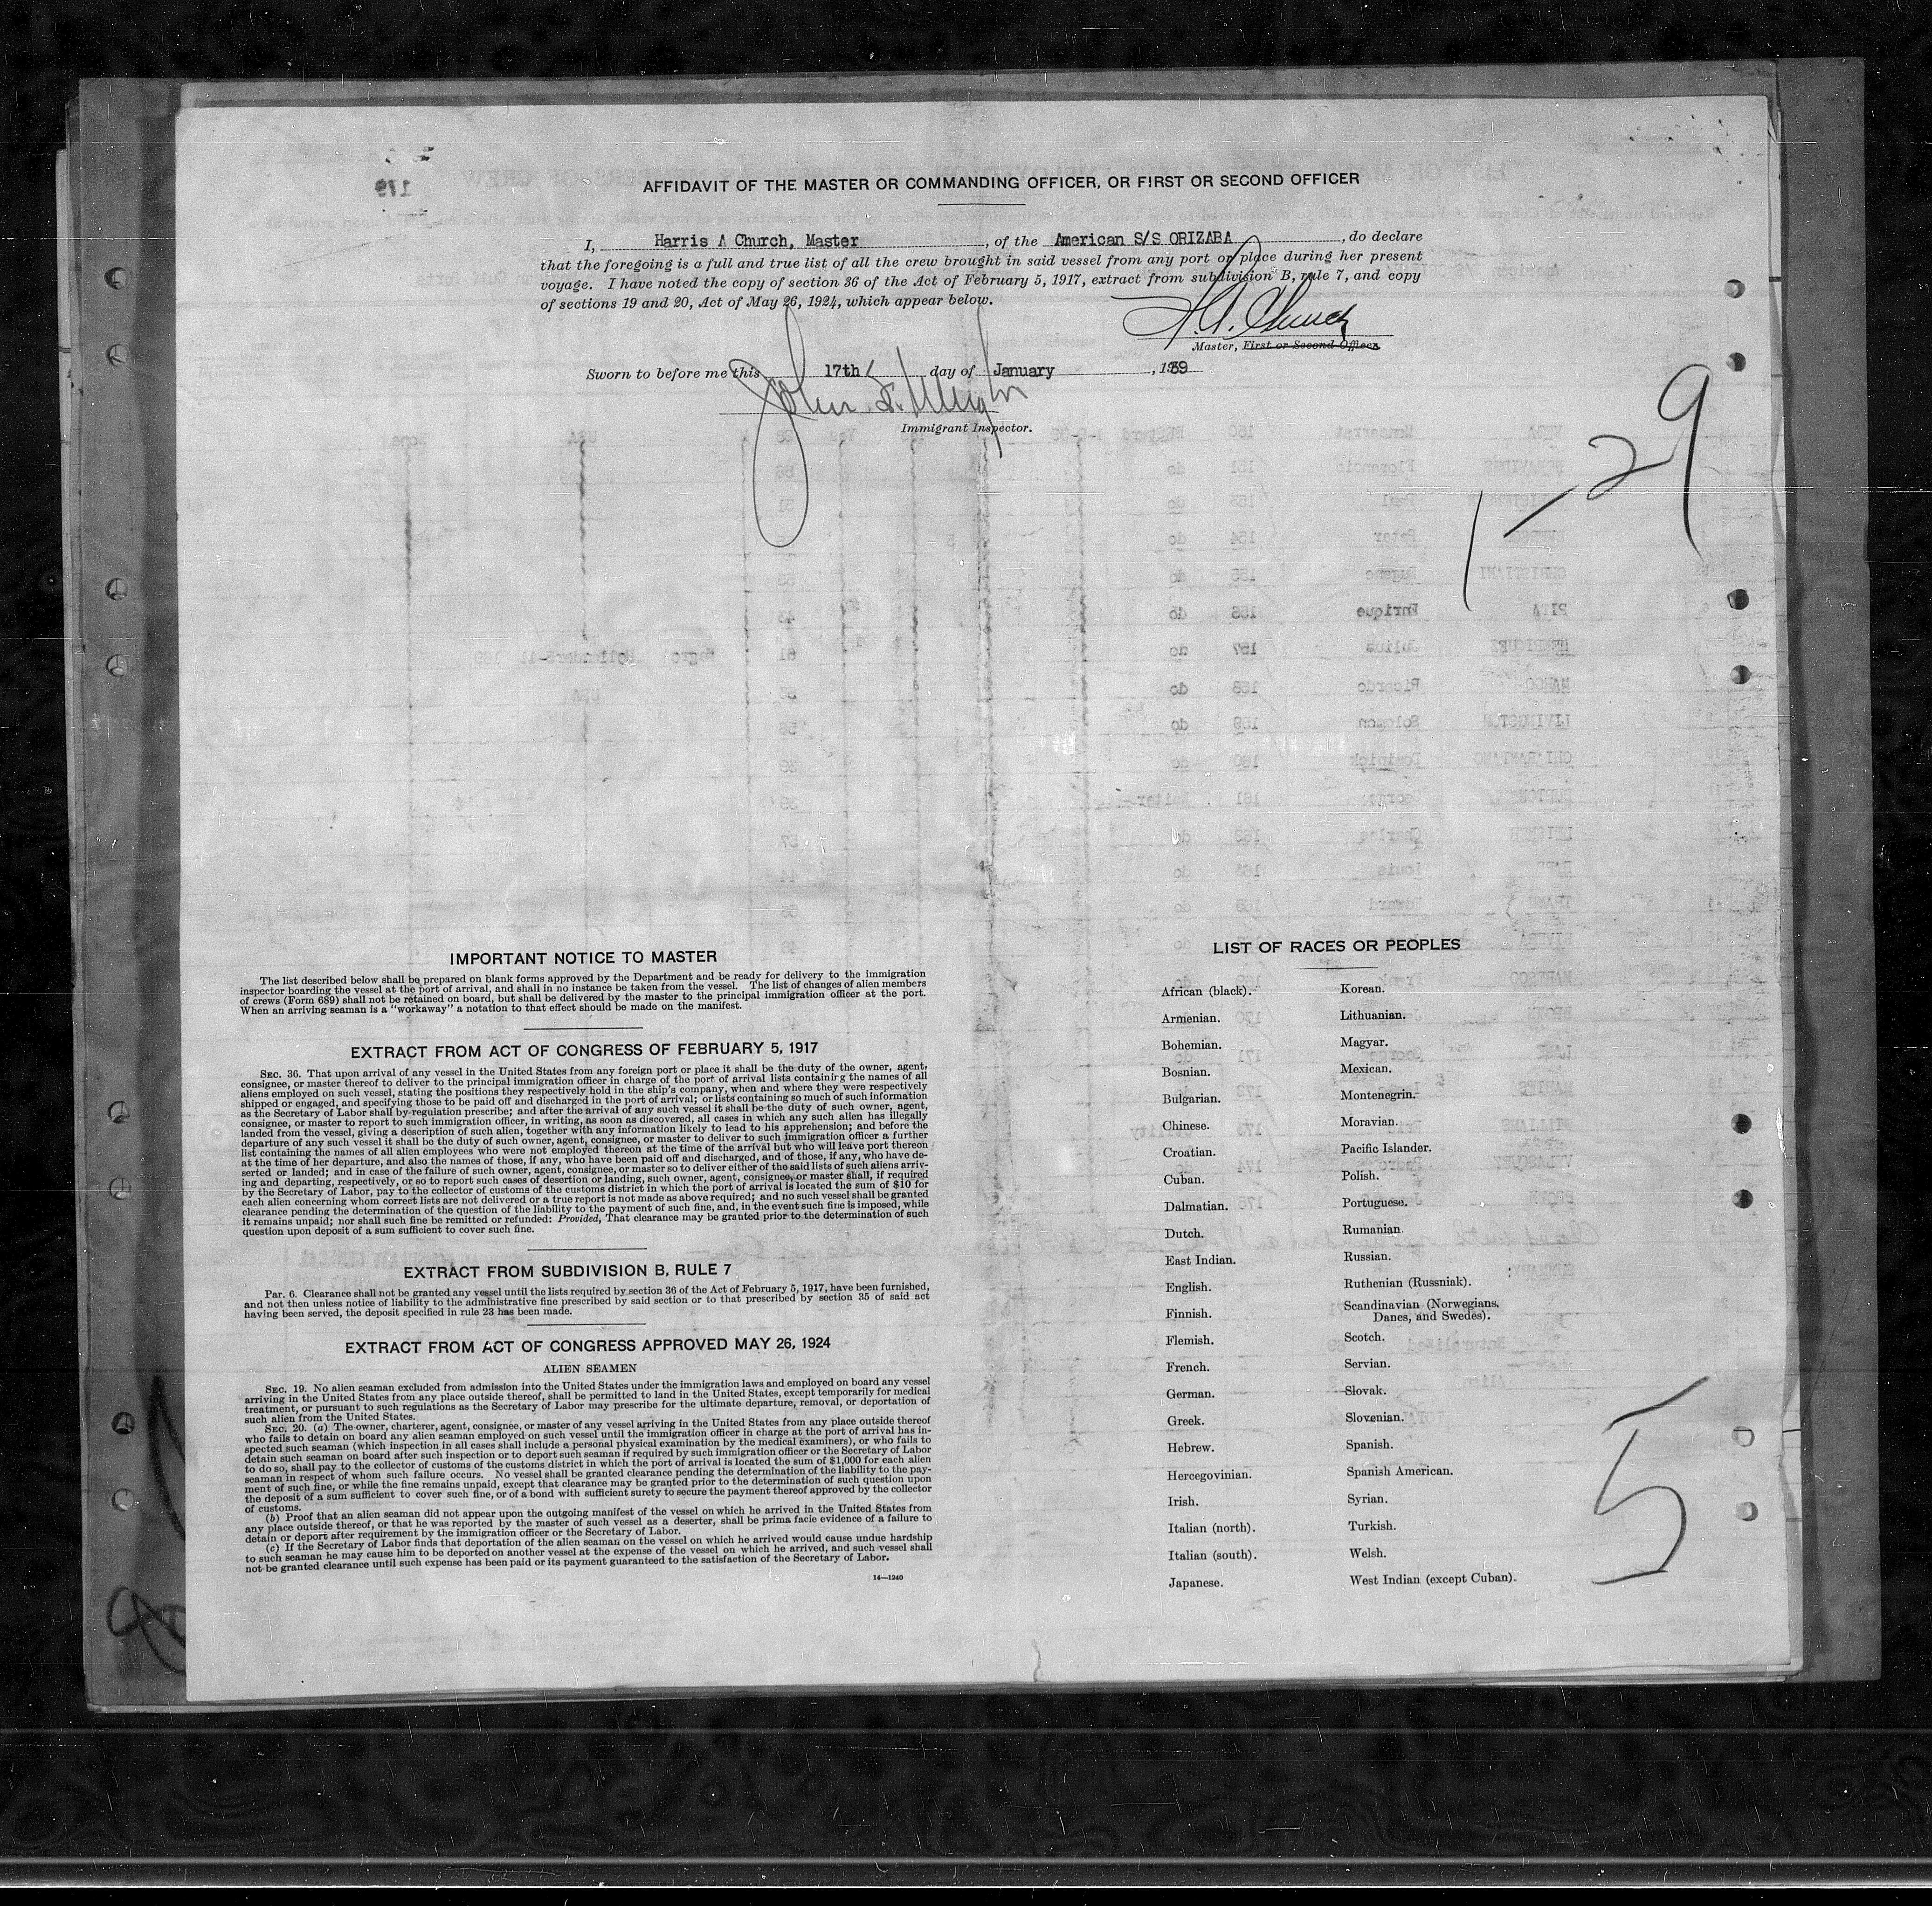 AFFIDAVIT OF THE MASTER OR COMMANDING OFFICER, OR FIRST OR SECOND OFFICER
I, Harris A Church, Master, of the American S/S ORIZABA, do declare
that the foregoing is a full and true list of all the crew brought in said vessel from any port or place during her present
voyage. I have noted the copy of section 36 of the Act of February 5, 1917, extract from subdivision B, rule 7, and copy
of sections 19 and 20, Act of May 26, 1924, which appear below.
H.A. Church
Master, First or Second Officer.
Sworn to before me this 17th day of January, 1939
John
Immigrant Inspector.
1-29
IMPORTANT NOTICE TO MASTER
The list described below shall be prepared on blank forms approved by the Department and be ready for delivery to the immigration
inspector boarding the vessel at the port of arrival, and shall in no instance be taken from the vessel. The list of changes of alien members
of crews (Form 689) shall not be retained on board, but shall be delivered by the master to the principal immigration officer at the port.
When an arriving seaman is a "workaway" a notation to that effect should be made on the manifest.
EXTRACT FROM ACT OF CONGRESS OF FEBRUARY 5, 1917
SEC. 36. That upon arrival of any vessel in the United States from any foreign port or place it shall be the duty of the owner, agent,
consignee, or master thereof to deliver to the principal immigration officer in charge of the port of arrival lists containing the names of all
aliens employed on such vessel, stating the positions they respectively hold in the ship's company, when and where they were respectively
shipped or engaged, and specifying those to be paid off and discharged in the port of arrival; or lists containing so much of such information
as the Secretary of Labor shall by regulation prescribe; and after the arrival of any such vessel it shall be the duty of such owner, agent,
consignee, or master to report to such immigration officer, in writing, as soon as discovered, all cases in which any such alien has illegally
landed from the vessel, giving a description of such alien, together with any information likely to lead to his apprehension; and before the
departure of any such vessel it shall be the duty of such owner, agent, consignee, or master to deliver to such immigration officer a further
list containing the names of all alien employees who were not employed thereon at the time of the arrival but who will leave port thereon
at the time of her departure, and also the names of those, if any, who have been paid off and discharged, and of those, if any, who have de-
serted or landed; and in case of the failure of such owner, agent, consignee, or master so to deliver either of the said lists of such aliens arriv-
ing and departing, respectively, or so to report such cases of desertion or landing, such owner, agent, consignee, or master shall, if required
by the Secretary of Labor, pay to the collector of customs of the customs district in which the port of arrival is located the sum of $10 for
each alien concerning whom correct lists are not delivered or a true report is not made as above required; and no such vessel shall be granted
clearance pending the determination of the question of the liability to the payment of such fine, and, in the event such fine is imposed, while
it remains unpaid; nor shall such fine be remitted or refunded: Provided, That clearance may be granted prior to the determination of such
question upon deposit of a sum sufficient to cover such fine.
EXTRACT FROM SUBDIVISION B, RULE 7
Par. 6. Clearance shall not be granted any vessel until the lists required by section 36 of the Act of February 5, 1917, have been furnished,
and not then unless notice of liability to the administrative fine prescribed by said section or to that prescribed by section 35 of said act
having been served, the deposit specified in rule 23 has been made.
EXTRACT FROM ACT OF CONGRESS APPROVED MAY 26, 1924
ALIEN SEAMEN
SEC. 19. No alien seaman excluded from admission into the United States under the immigration laws and employed on board any vessel
arriving in the United States from any place outside thereof, shall be permitted to land in the United States, except temporarily for medical
treatment, or pursuant to such regulations as the Secretary of Labor may prescribe for the ultimate departure, removal, or deportation of
such alien from the United States.
SEC. 20. (a) The owner, charterer, agent, consignee, or master of any vessel arriving in the United States from any place outside thereof
who fails to detain on board any alien seaman employed on such vessel until the immigration officer in charge at the port of arrival has in-
spected such seaman (which inspection in all cases shall include a personal physical examination by the medical examiners), or who fails to
detain such seaman on board after such inspection or to deport such seaman if required by such immigration officer or the Secretary of Labor
to do so, shall pay to the collector of customs of the customs district in which the port of arrival is located the sum of $1,000 for each alien
seaman in respect of whom such failure occurs. No vessel shall be granted clearance pending the determination of the liability to the pay-
ment of such fine, or while the fine remains unpaid, except that clearance may be granted prior to the determination of such question upon
the deposit of a sum sufficient to cover such fine, or of a bond with sufficient surety to secure the payment thereof approved by the collector
of customs.
(b) Proof that an alien seaman did not appear upon the outgoing manifest of the vessel on which he arrived in the United States from
any place outside thereof, or that he was reported by the master of such vessel as a deserter, shall be prima facie evidence of a failure to
detain or deport after requirement by the immigration officer or the Secretary of Labor.
(c) If the Secretary of Labor finds that deportation of the alien seaman on the vessel on which he arrived would cause undue hardship
to such seaman he may cause him to be deported on another vessel at the expense of the vessel on which he arrived, and such vessel shall
not be granted clearance until such expense has been paid or its payment guaranteed to the satisfaction of the Secretary of Labor.
14—1240
LIST OF RACES OR PEOPLES
African (black).
Armenian.
Bohemian.
Bosnian.
Bulgarian.
Chinese.
Croatian.
Cuban.
Dalmatian.
Dutch.
East Indian.
English.
Finnish.
Flemish.
French.
German.
Greek.
Hebrew.
Hercegovinian.
Irish.
Italian (north).
Italian (south).
Japanese.
Korean.
Lithuanian.
Magyar.
Mexican.
Montenegrin.
Moravian.
Pacific Islander.
Polish.
Portuguese.
Rumanian.
Russian.
Ruthenian (Russniak).
Scandinavian (Norwegians,
Danes, and Swedes).
Scotch.
Servian.
Slovak.
Slovenian.
Spanish.
Spanish American.
Syrian.
Turkish.
Welsh.
West Indian (except Cuban).
5